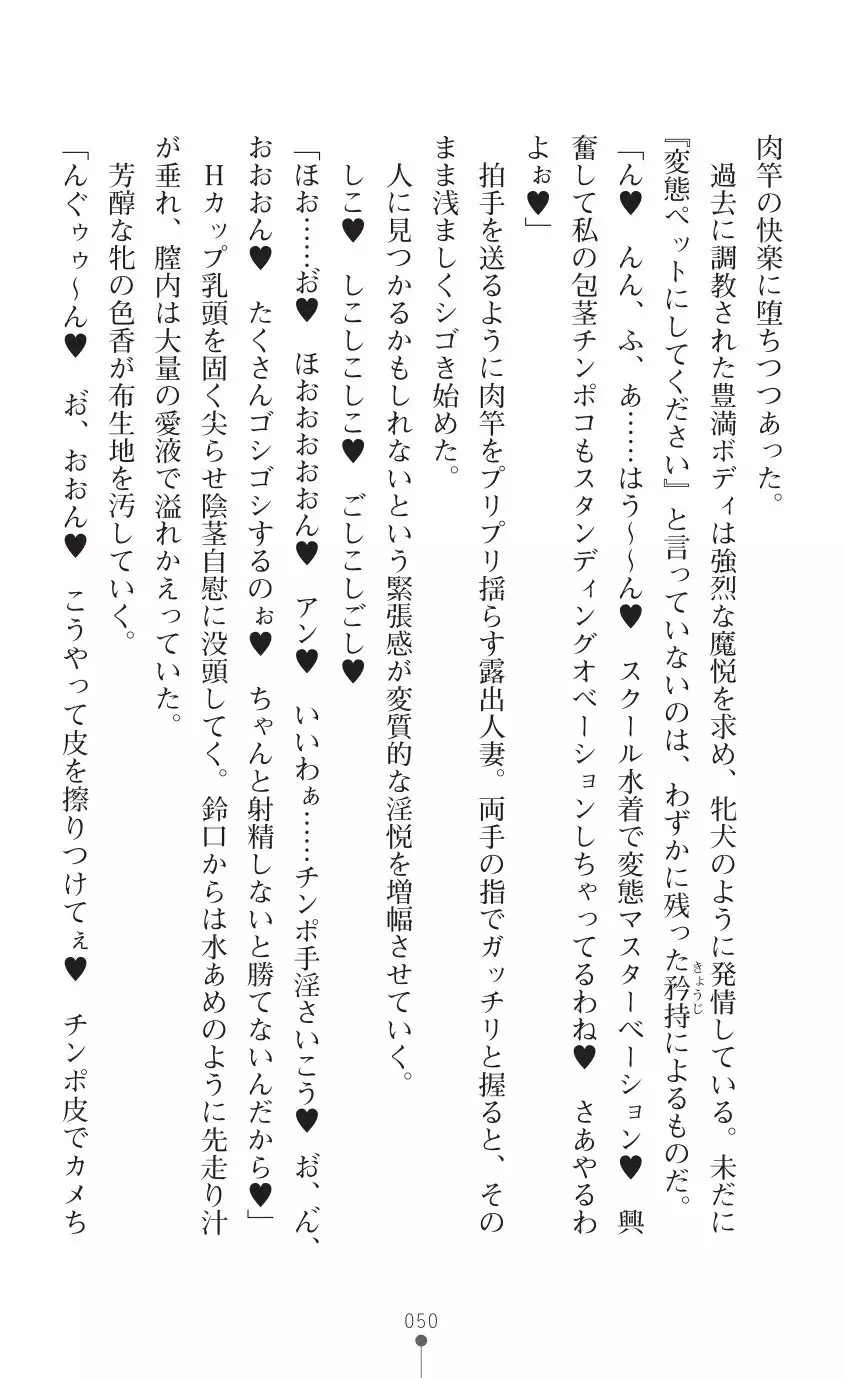 肉竿の快楽に堕ちつつあった。
　過去に調教された豊満ボディは強烈な魔悦を求め、牝犬のように発情している。未だに
『変態ペットにしてください』と言っていないのは、わずかに残った矜持によるものだ。
きょうじ
「ん♥　んん、ふ、あ……はう～～ん♥　スクール水着で変態マスターベーション♥　興
奮して私の包茎チンポコもスタンディングオベーションしちゃってるわね♥　さあやるわ
よぉ♥」
　拍手を送るように肉竿をプリプリ揺らす露出人妻。両手の指でガッチリと握ると、その
まま浅ましくシゴき始めた。
　人に見つかるかもしれないという緊張感が変質的な淫悦を増幅させていく。
　しこ♥　しこしこしこ♥　ごしこしごし♥
「ほお……お゛♥　ほおおおおおん♥　アン♥　いいわぁ……チンポ手淫さいこう♥　お゛、ん゛、
おおおおん♥　たくさんゴシゴシするのぉ♥　ちゃんと射精しないと勝てないんだから♥」
　Hカップ乳頭を固く尖らせ陰茎自慰に没頭してく。鈴口からは水あめのように先走り汁
が垂れ、膣内は大量の愛液で溢れかえっていた。
　芳醇な牝の色香が布生地を汚していく。
「んぐぅぅ～ん♥　お゛、おおん♥　こうやって皮を擦りつけてぇ♥　チンポ皮でカメち
050